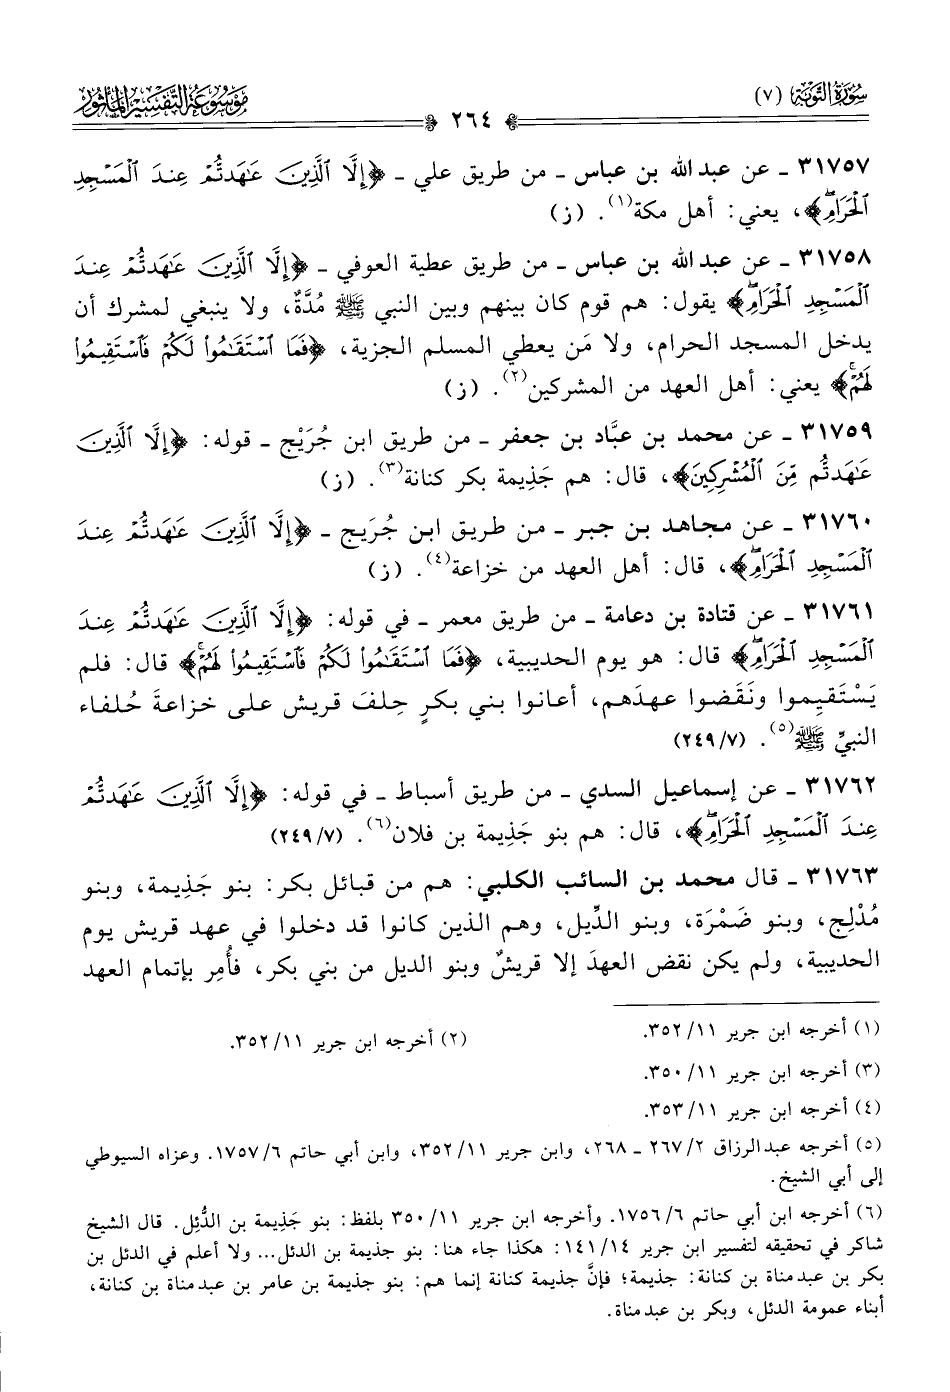 سورة التوبة (٧)
موسوعة التفسير المأثور
٢٦٤
٣١٧٥٧ ـ عن عبد الله بن عباس ـ من طريق علي ـ ﴿إِلَّا ٱلَّذِينَ عَٰهَدتُّمۡ عِندَ ٱلۡمَسۡجِدِ
ٱلۡحَرَامِۖ﴾، يعني: أهل مكة(١). (ز)
٣١٧٥٨ ـ عن عبد الله بن عباس ـ من طريق عطية العوفي ـ ﴿إِلَّا ٱلَّذِينَ عَٰهَدتُّمۡ عِندَ
ٱلۡمَسۡجِدِ ٱلۡحَرَامِۖ﴾ يقول: هم قوم كان بينهم وبين النبي ﷺ مُدَّةٌ، ولا ينبغي لمشرك أن
يدخل المسجد الحرام، ولا مَن يعطي المسلم الجزية، ﴿فَمَا ٱسۡتَقَٰمُواْ لَكُمۡ فَٱسۡتَقِيمُواْ
لَهُمۡۚ﴾ يعني: أهل العهد من المشركين(٢). (ز)
٣١٧٥٩ ـ عن محمد بن عبَّاد بن جعفر ـ من طريق ابن جُرَيْج ـ قوله: ﴿إِلَّا ٱلَّذِينَ
عَٰهَدتُّم مِّنَ ٱلۡمُشۡرِكِينَ﴾، قال: هم جَذِيمة بكر كنانة(٣). (ز)
٣١٧٦٠ ـ عن مجاهد بن جبر ـ من طريق ابن جُرَيج ـ ﴿إِلَّا ٱلَّذِينَ عَٰهَدتُّمۡ عِندَ
ٱلۡمَسۡجِدِ ٱلۡحَرَامِۖ﴾، قال: أهل العهد من خزاعة(٤). (ز)
٣١٧٦١ ـ عن قتادة بن دعامة ـ من طريق معمر ـ في قوله: ﴿إِلَّا ٱلَّذِينَ عَٰهَدتُّمۡ عِندَ
ٱلۡمَسۡجِدِ ٱلۡحَرَامِۖ﴾ قال: هو يوم الحديبية، ﴿فَمَا ٱسۡتَقَٰمُواْ لَكُمۡ فَٱسۡتَقِيمُواْ لَهُمۡۚ﴾ قال: فلم
يَسْتَقِيموا ونَقَضوا عهدَهم، أعانوا بني بكرٍ حِلفَ قريش على خزاعةَ حُلفاء
النبيِّ ﷺ(٥). (٧/٢٤٩)
٣١٧٦٢ ـ عن إسماعيل السدي ـ من طريق أسباط ـ في قوله: ﴿إِلَّا ٱلَّذِينَ عَٰهَدتُّمۡ
عِندَ ٱلۡمَسۡجِدِ ٱلۡحَرَامِۖ﴾، قال: هم بنو جَذِيمة بن فلان(٦). (٧/٢٤٩)
٣١٧٦٣ ـ قال محمد بن السائب الكلبي: هم من قبائل بكر: بنو جَذِيمة، وبنو
مُدْلِج، وبنو ضَمْرَة، وبنو الدِّيل، وهم الذين كانوا قد دخلوا في عهد قريش يوم
الحديبية، ولم يكن نقض العهدَ إلا قريشٌ وبنو الديل من بني بكر، فأُمِر بإتمام العهد
(١) أخرجه ابن جرير ١١/ ٣٥٢.
(٢) أخرجه ابن جرير ١١/ ٣٥٢.
(٣) أخرجه ابن جرير ١١/ ٣٥٠.
(٤) أخرجه ابن جرير ١١/ ٣٥٣.
(٥) أخرجه عبد الرزاق ٢/ ٢٦٧ ـ ٢٦٨، وابن جرير ١١/ ٣٥٢، وابن أبي حاتم ٦/ ١٧٥٧. وعزاه السيوطي
إلى أبي الشيخ.
(٦) أخرجه ابن أبي حاتم ٦/ ١٧٥٦. وأخرجه ابن جرير ١١/ ٣٥٠ بلفظ: بنو جَذِيمة بن الدُّئِل. قال الشيخ
شاكر في تحقيقه لتفسير ابن جرير ١٤/ ١٤١: هكذا جاء هنا: بنو جذيمة بن الدئل... ولا أعلم في الدئل بن
بكر بن عبد مناة بن كنانة: جذيمة؛ فإنَّ جذيمة كنانة إنما هم: بنو جذيمة بن عامر بن عبد مناة بن كنانة،
أبناء عمومة الدئل، وبكر بن عبد مناة.